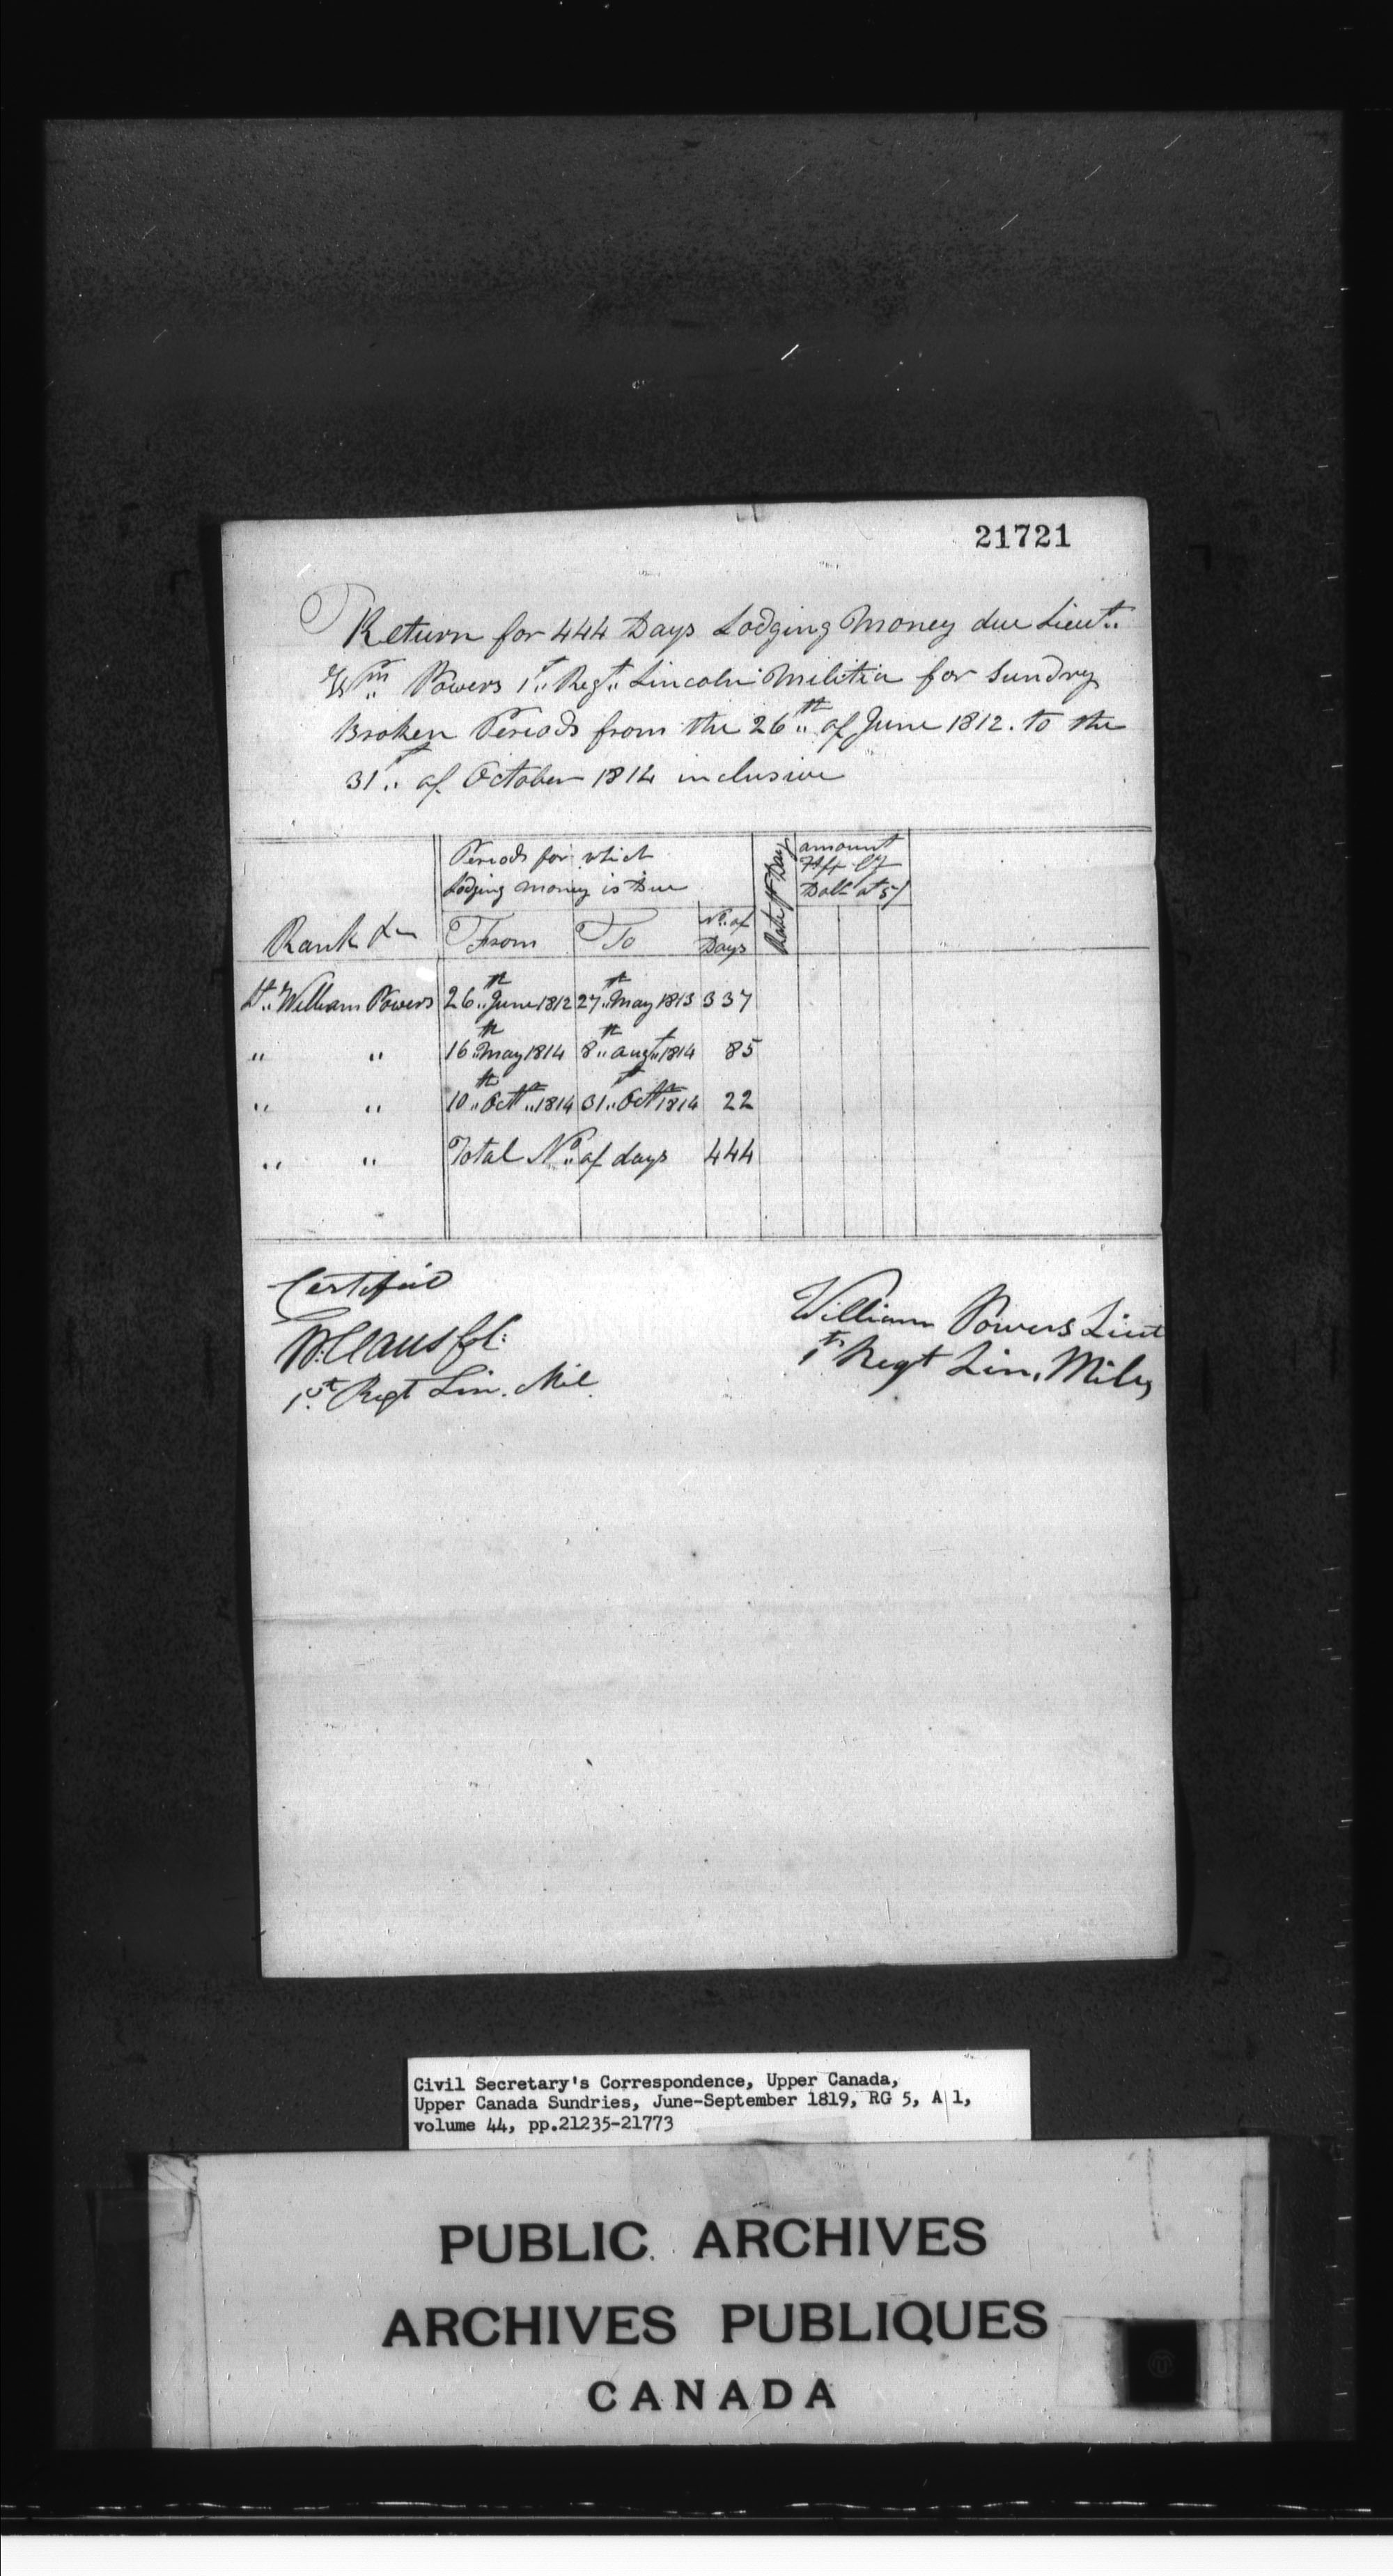 21721
Return for 444 Days Lodging Money due Lieut.
Wm Powers 1st Regt Lincoln Militia for Sundry
Broken Periods from the 26th of June 1812. to the
31st of October 1814 inclusive
Rank &c
Periods for which
Lodging money is Due
From To No. of Days
Rate pr Day
amount
Doll. at 5/
Lt. William Powers 26th June 1812 27th May 1813 337
" " 16th May 1814 8th augt 1814 85
" " 10th Octr 1814 31st Octr 1814 22
" " Total No. of days 444
Certified
W. Claus Col:
1st Regt Lin. Mil.
William Powers Lieut
1st Regt Lin. Mila
Civil Secretary's Correspondence, Upper Canada,
Upper Canada Sundries, June-September 1819, RG 5, A 1,
volume 44, pp.21235-21773
PUBLIC ARCHIVES
ARCHIVES PUBLIQUES
CANADA